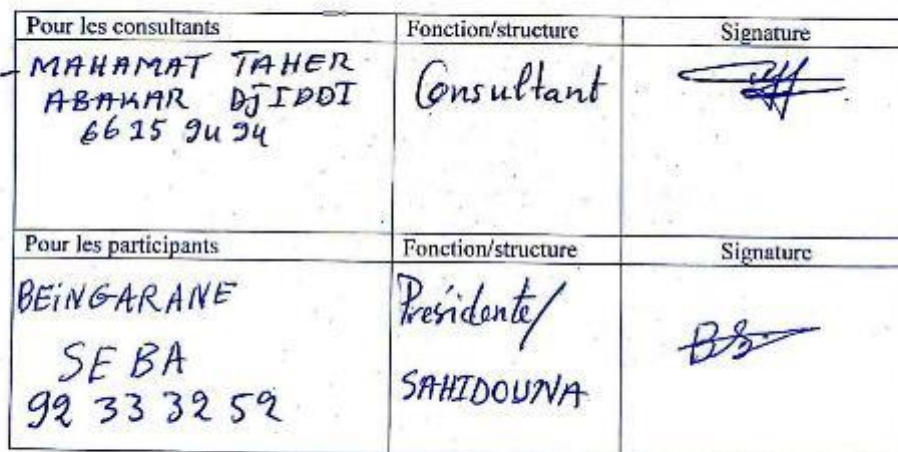 Pour les consultants Fonction/structure Signature
MAHAMAT TAHER
ABAKAR DJIDDI
66 25 94 94
Consultant
Pour les participants Fonction/structure Signature
BEINGARANE
SEBA
92 33 32 52
Présidente/
SAHIDOUNA